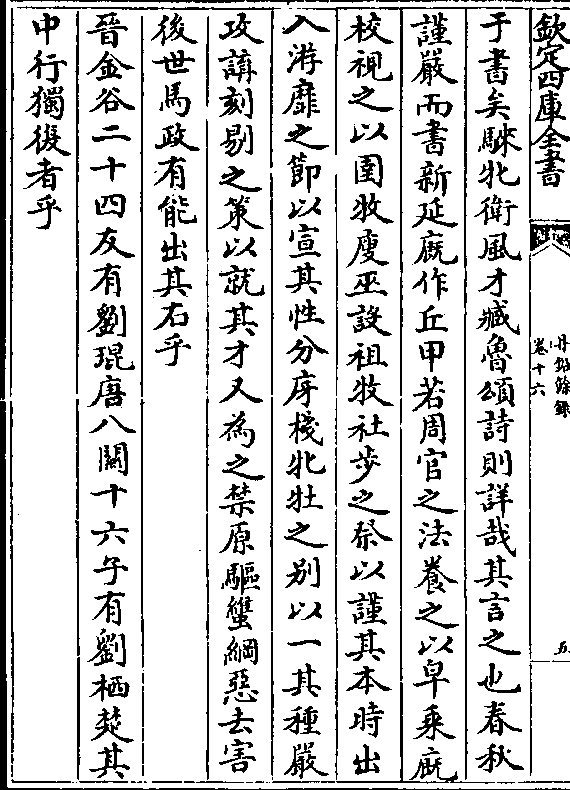 欽定四庫全書
丹鉛餘錄
卷十六
五
于書矣騋牝衛風才臧魯頌詩則詳哉其言之也春秋
謹嚴而書新延廐作丘甲若周官之法養之以皁乗廐
校視之以圉牧廋巫設祖牧社步之祭以謹其本時出
入游靡之節以宣其性分序棧牝牡之别以一其種嚴
攻講刻剔之策以就其才又為之禁原驅蠥綱惡去害
後世馬政有能出其右乎
晉金谷二十四友有劉琨唐八關十六子有劉栖楚其
中行獨後者乎